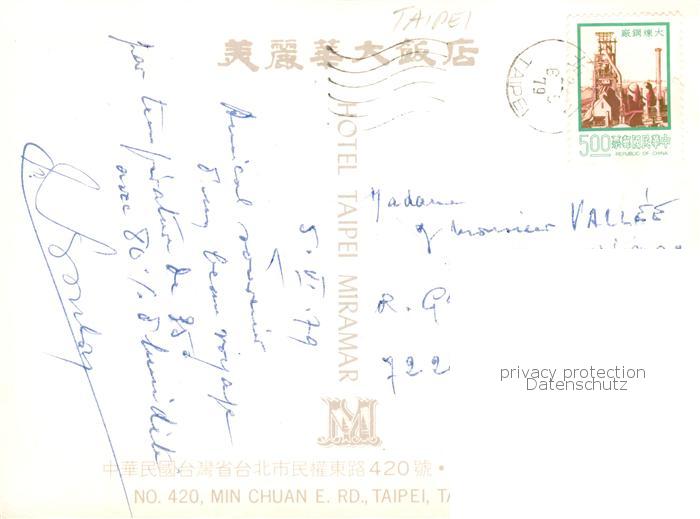 TAIPEI
美麗華大飯店
HOTEL TAIPEI MIRAMAR
M
中華民國台灣省台北市民權東路420號•
NO. 420, MIN CHUAN E. RD., TAIPEI, TA
大煉鋼廠
500 中華民國郵票
REPUBLIC OF CHINA
TAIPEI
79
5.VI.79
Amical souvenir
d'un beau voyage
par température de 35°
avec 80% d'humidité
Madame
& Monsieur VALLÉE
R. G
722
privacy protection
Datenschutz